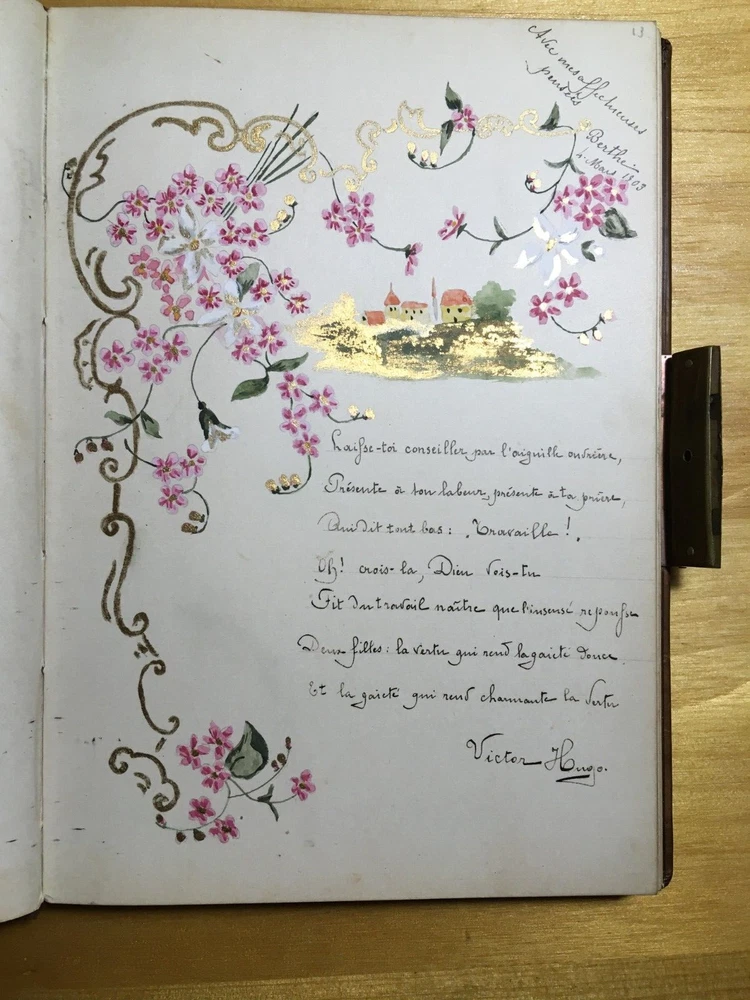 13
Avec mes affectueuses
pensées
Berthe
4 Mars 1903
Laisse-toi conseiller par l'aiguille ouvrière,
Présente à ton labeur, présente à ta prière,
Qui dit tout bas : „Travaille !„
Oh! crois-la, Dieu vois-tu
Fit du travail naître que l'insensé repousse
Deux filles : la vertu qui rend la gaieté douce
Et la gaieté qui rend charmante la vertu
Victor Hugo.